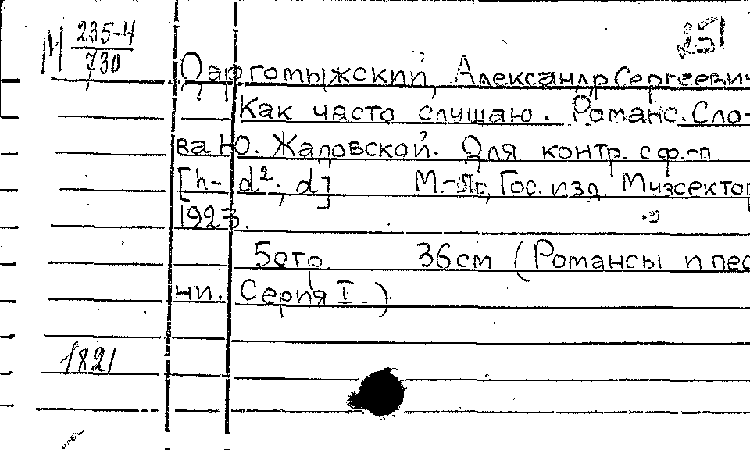 М 235-4
730
251
Даргомыжский, Александр Сергеевич
Как часто слушаю. Романс. Сло-
ва Ю. Жадовской. Для контр. с ф.-п.
[h- d²; d] М.-Пг, Гос. изд. Музсектор
1923.
5 стр. 36 см (Романсы и пес
ни. Серия I.)
1821